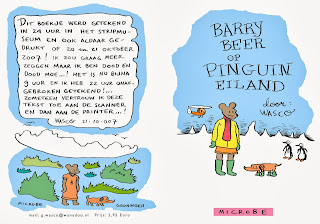 DIT BOEKJE WERD GETEKEND
IN 24 UUR IN HET STRIPMU-
SEUM EN OOK ALDAAR GE-
DRUKT OP 20 EN 21 OKTOBER
2007! IK ZOU GRAAG MEER
ZEGGEN MAAR IK BEN DOOD EN
DOOD MOE...! HET IS NU BIJNA
9 UUR EN IK HEB 22 UUR ONAF-
GEBROKEN GETEKEND!...
ZOMETEEN VERTROUW IK DEZE
TEKST TOE AAN DE SCANNER
EN DAN AAN DE PRINTER...!
WASCO 21-10-1107
MICROBE GRONINGEN
mail: g.wasco@wanadoo.nl Prijs: 3,95 Euro
BARRY
BEER
OP
PINGUIN
EILAND
door:
WASCO
MICROBE